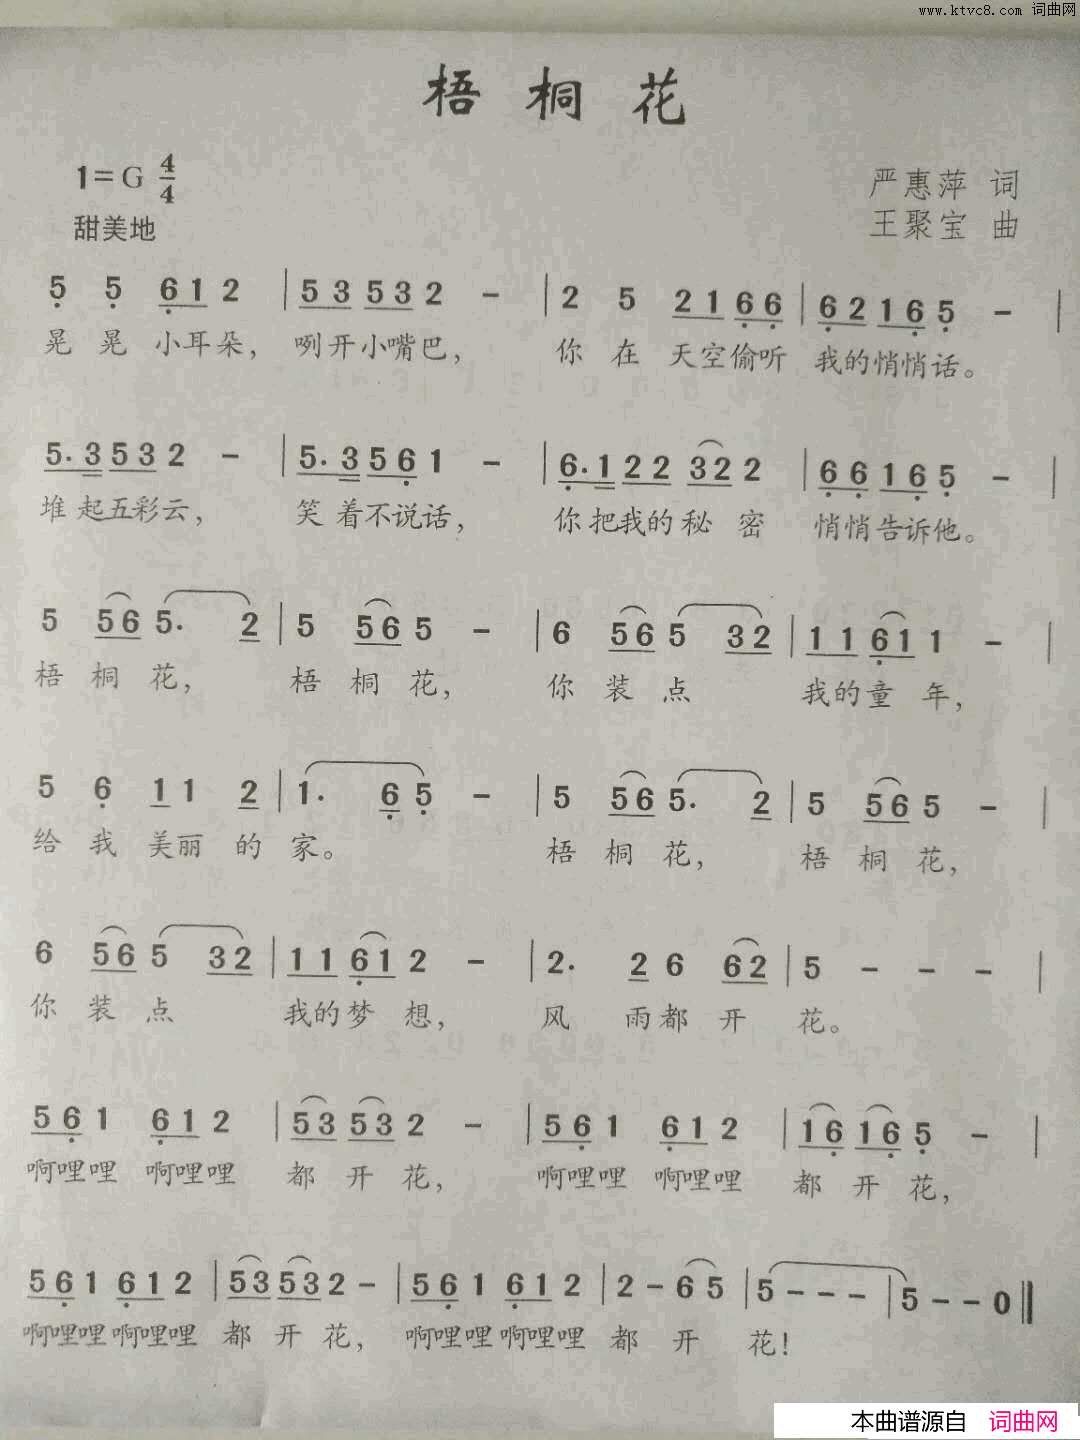 www.ktvc8.com 词曲网
梧桐花
1=G 4/4
严惠萍 词
甜美地
王聚宝 曲
5 5 6 1 2 | 5 3 5 3 2 - | 2 5 2 1 6 6 | 6 2 1 6 5 - |
晃 晃 小耳朵， 咧开小嘴巴， 你 在 天空偷听 我的悄悄话。
5. 3 5 3 2 - | 5. 3 5 6 1 - | 6. 1 2 2 3 2 2 | 6 6 1 6 5 - |
堆 起五彩云， 笑 着不说话， 你把我的秘 密 悄悄告诉他。
5 5 6 5. 2 | 5 5 6 5 - | 6 5 6 5 3 2 | 1 1 6 1 1 - |
梧 桐 花， 梧 桐 花， 你 装 点 我的童 年，
5 6 1 1 2 | 1. 6 5 - | 5 5 6 5. 2 | 5 5 6 5 - |
给 我 美丽 的 家。 梧 桐 花， 梧 桐 花，
6 5 6 5 3 2 | 1 1 6 1 2 - | 2. 2 6 6 2 | 5 - - - |
你 装 点 我的梦 想， 风 雨都 开 花。
5 6 1 6 1 2 | 5 3 5 3 2 - | 5 6 1 6 1 2 | 1 6 1 6 5 - |
啊哩哩 啊哩哩 都 开 花， 啊哩哩 啊哩哩 都 开 花，
5 6 1 6 1 2 | 5 3 5 3 2 - | 5 6 1 6 1 2 | 2 - 6 5 | 5 - - - | 5 - - 0 ||
啊哩哩 啊哩哩 都 开 花， 啊哩哩 啊哩哩 都 开 花！
本曲谱源自 词曲网